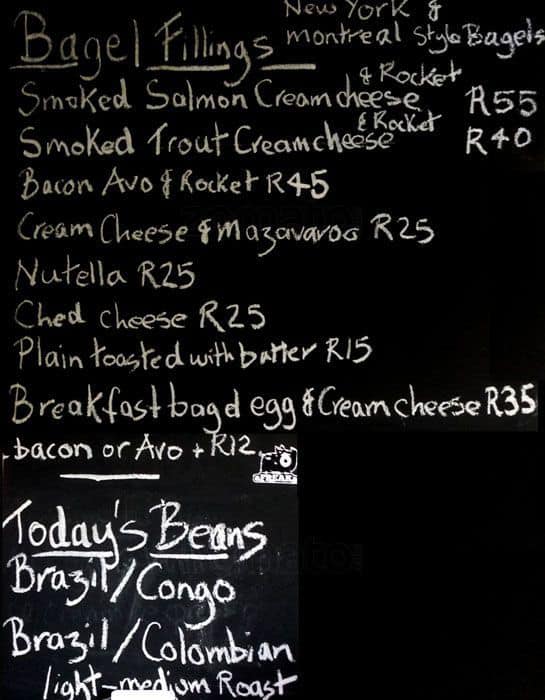 Bagel Fillings New York &
montreal Style Bagels
Smoked Salmon Creamcheese & Rocket R55
Smoked Trout Creamcheese & Rocket R40
Bacon Avo & Rocket R45
Cream Cheese & Mazavaroo R25
Nutella R25
Ched cheese R25
Plain toasted with butter R15
Breakfast bagel egg & Cream cheese R35
bacon or Avo + R12
Today's Beans
Brazil/Congo
Brazil/Colombian
light-medium Roast